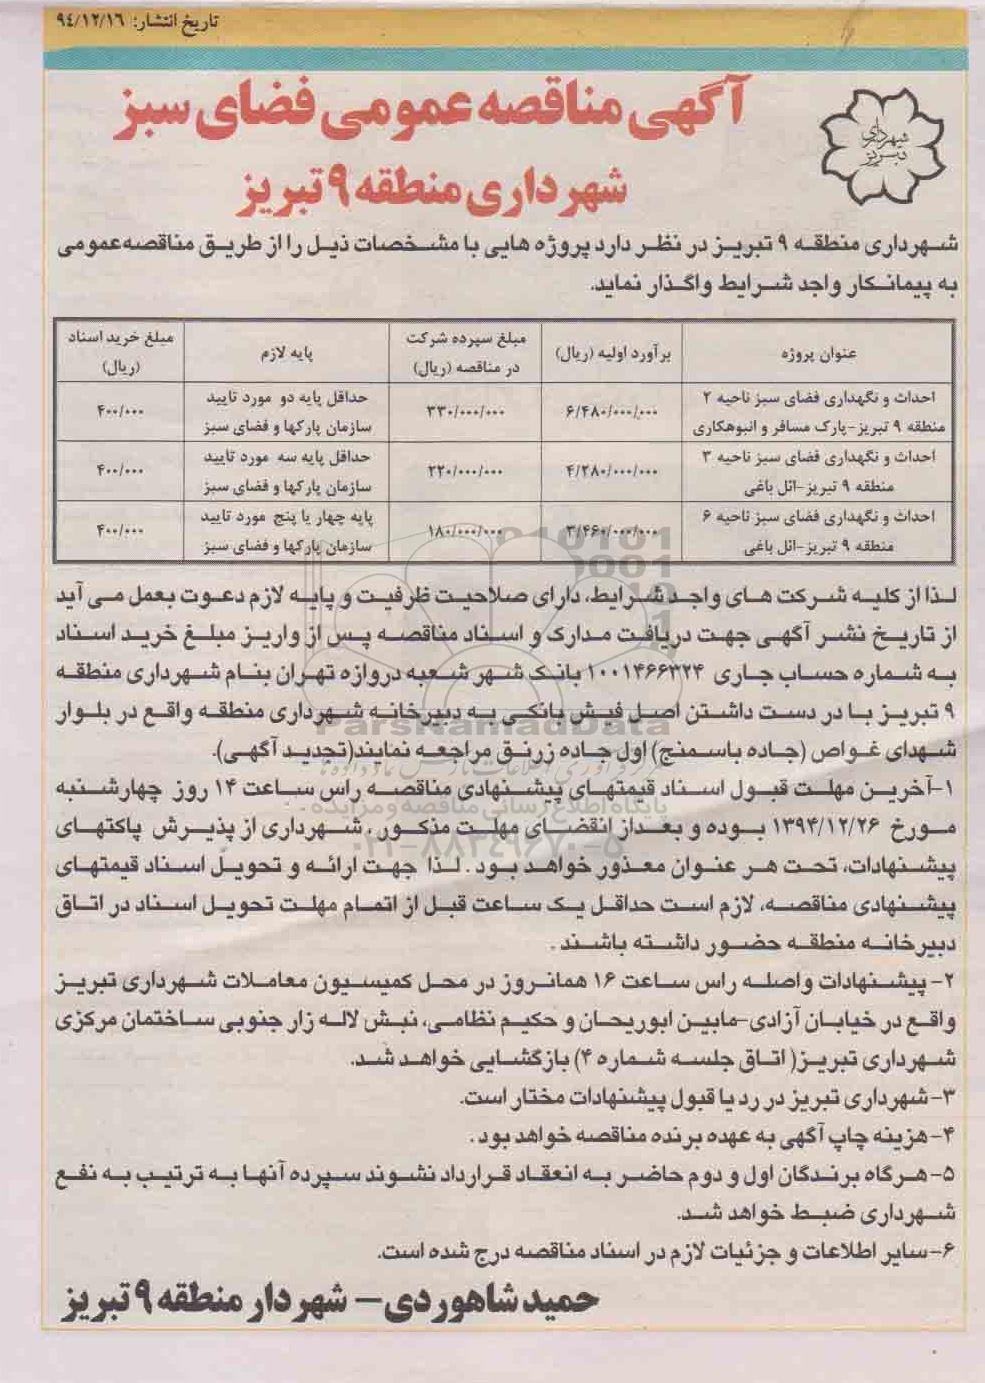 تاریخ انتشار: ۹۴/۱۲/۱۶
شهرداری
تبریز
آگهی مناقصه عمومی فضای سبز
شهرداری منطقه ۹ تبریز
شهرداری منطقه ۹ تبریز در نظر دارد پروژه هایی با مشخصات ذیل را از طریق مناقصه عمومی
به پیمانکار واجد شرایط واگذار نماید.
عنوان پروژه
برآورد اولیه (ریال)
مبلغ سپرده شرکت
در مناقصه (ریال)
پایه لازم
مبلغ خرید اسناد
(ریال)
احداث و نگهداری فضای سبز ناحیه ۲
منطقه ۹ تبریز-پارک مسافر و انبوهکاری
۶/۴۸۰/۰۰۰/۰۰۰
۳۳۰/۰۰۰/۰۰۰
حداقل پایه دو مورد تایید
سازمان پارکها و فضای سبز
۴۰۰/۰۰۰
احداث و نگهداری فضای سبز ناحیه ۳
منطقه ۹ تبریز-ائل باغی
۴/۲۸۰/۰۰۰/۰۰۰
۲۲۰/۰۰۰/۰۰۰
حداقل پایه سه مورد تایید
سازمان پارکها و فضای سبز
۴۰۰/۰۰۰
احداث و نگهداری فضای سبز ناحیه ۶
منطقه ۹ تبریز-ائل باغی
۳/۴۶۰/۰۰۰/۰۰۰
۱۸۰/۰۰۰/۰۰۰
پایه چهار یا پنج مورد تایید
سازمان پارکها و فضای سبز
۴۰۰/۰۰۰
لذا از کلیه شرکت های واجد شرایط، دارای صلاحیت ظرفیت و پایه لازم دعوت بعمل می آید
از تاریخ نشر آگهی جهت دریافت مدارک و اسناد مناقصه پس از واریز مبلغ خرید اسناد
به شماره حساب جاری ۱۰۰۱۴۶۶۳۲۴ بانک شهر شعبه دروازه تهران بنام شهرداری منطقه
۹ تبریز با در دست داشتن اصل فیش بانکی به دبیرخانه شهرداری منطقه واقع در بلوار
شهدای غواص (جاده باسمنج) اول جاده زرنق مراجعه نمایند(تجدید آگهی).
۱-آخرین مهلت قبول اسناد قیمتهای پیشنهادی مناقصه راس ساعت ۱۴ روز چهارشنبه
مورخ ۱۳۹۴/۱۲/۲۶ بوده و بعداز انقضای مهلت مذکور، شهرداری از پذیرش پاکتهای
پیشنهادات، تحت هر عنوان معذور خواهد بود. لذا جهت ارائه و تحویل اسناد قیمتهای
پیشنهادی مناقصه، لازم است حداقل یک ساعت قبل از اتمام مهلت تحویل اسناد در اتاق
دبیرخانه منطقه حضور داشته باشند.
۲-پیشنهادات واصله راس ساعت ۱۶ همانروز در محل کمیسیون معاملات شهرداری تبریز
واقع در خیابان آزادی-مابین ابوریحان و حکیم نظامی، نبش لاله زار جنوبی ساختمان مرکزی
شهرداری تبریز( اتاق جلسه شماره ۴) بازگشایی خواهد شد.
۳-شهرداری تبریز در رد یا قبول پیشنهادات مختار است.
۴-هزینه چاپ آگهی به عهده برنده مناقصه خواهد بود.
۵-هرگاه برندگان اول و دوم حاضر به انعقاد قرارداد نشوند سپرده آنها به ترتیب به نفع
شهرداری ضبط خواهد شد.
۶-سایر اطلاعات و جزئیات لازم در اسناد مناقصه درج شده است.
حمید شاهوردی- شهردار منطقه ۹ تبریز
ParsNamadData
پایگاه اطلاع رسانی مناقصه و مزایده
۰۲۱-۸۸۳۴۹۶۷۰-۵